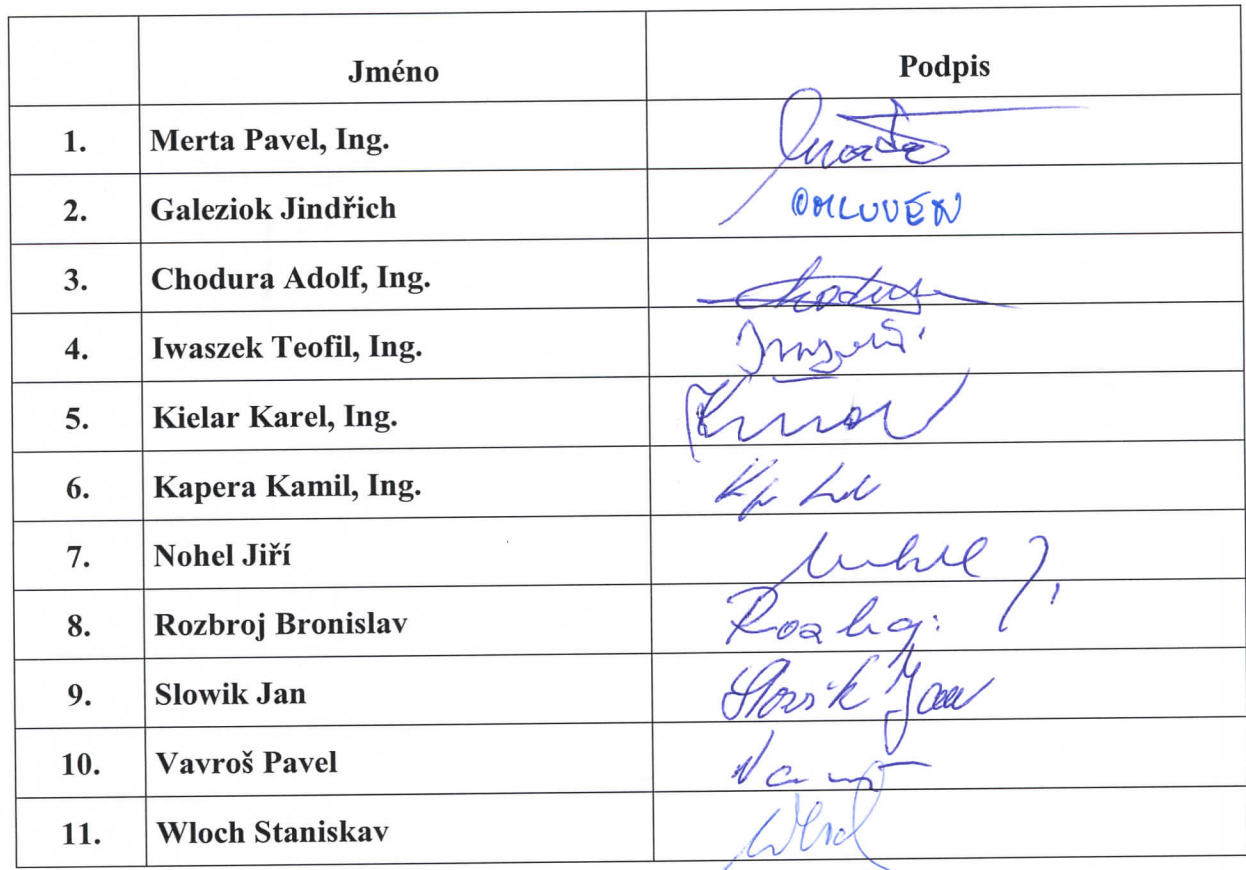 Jméno Podpis
1. Merta Pavel, Ing.
2. Galeziok Jindřich OMLUVEN
3. Chodura Adolf, Ing.
4. Iwaszek Teofil, Ing.
5. Kielar Karel, Ing.
6. Kapera Kamil, Ing.
7. Nohel Jiří
8. Rozbroj Bronislav
9. Slowik Jan Slowik Jan
10. Vavroš Pavel
11. Wloch Staniskav